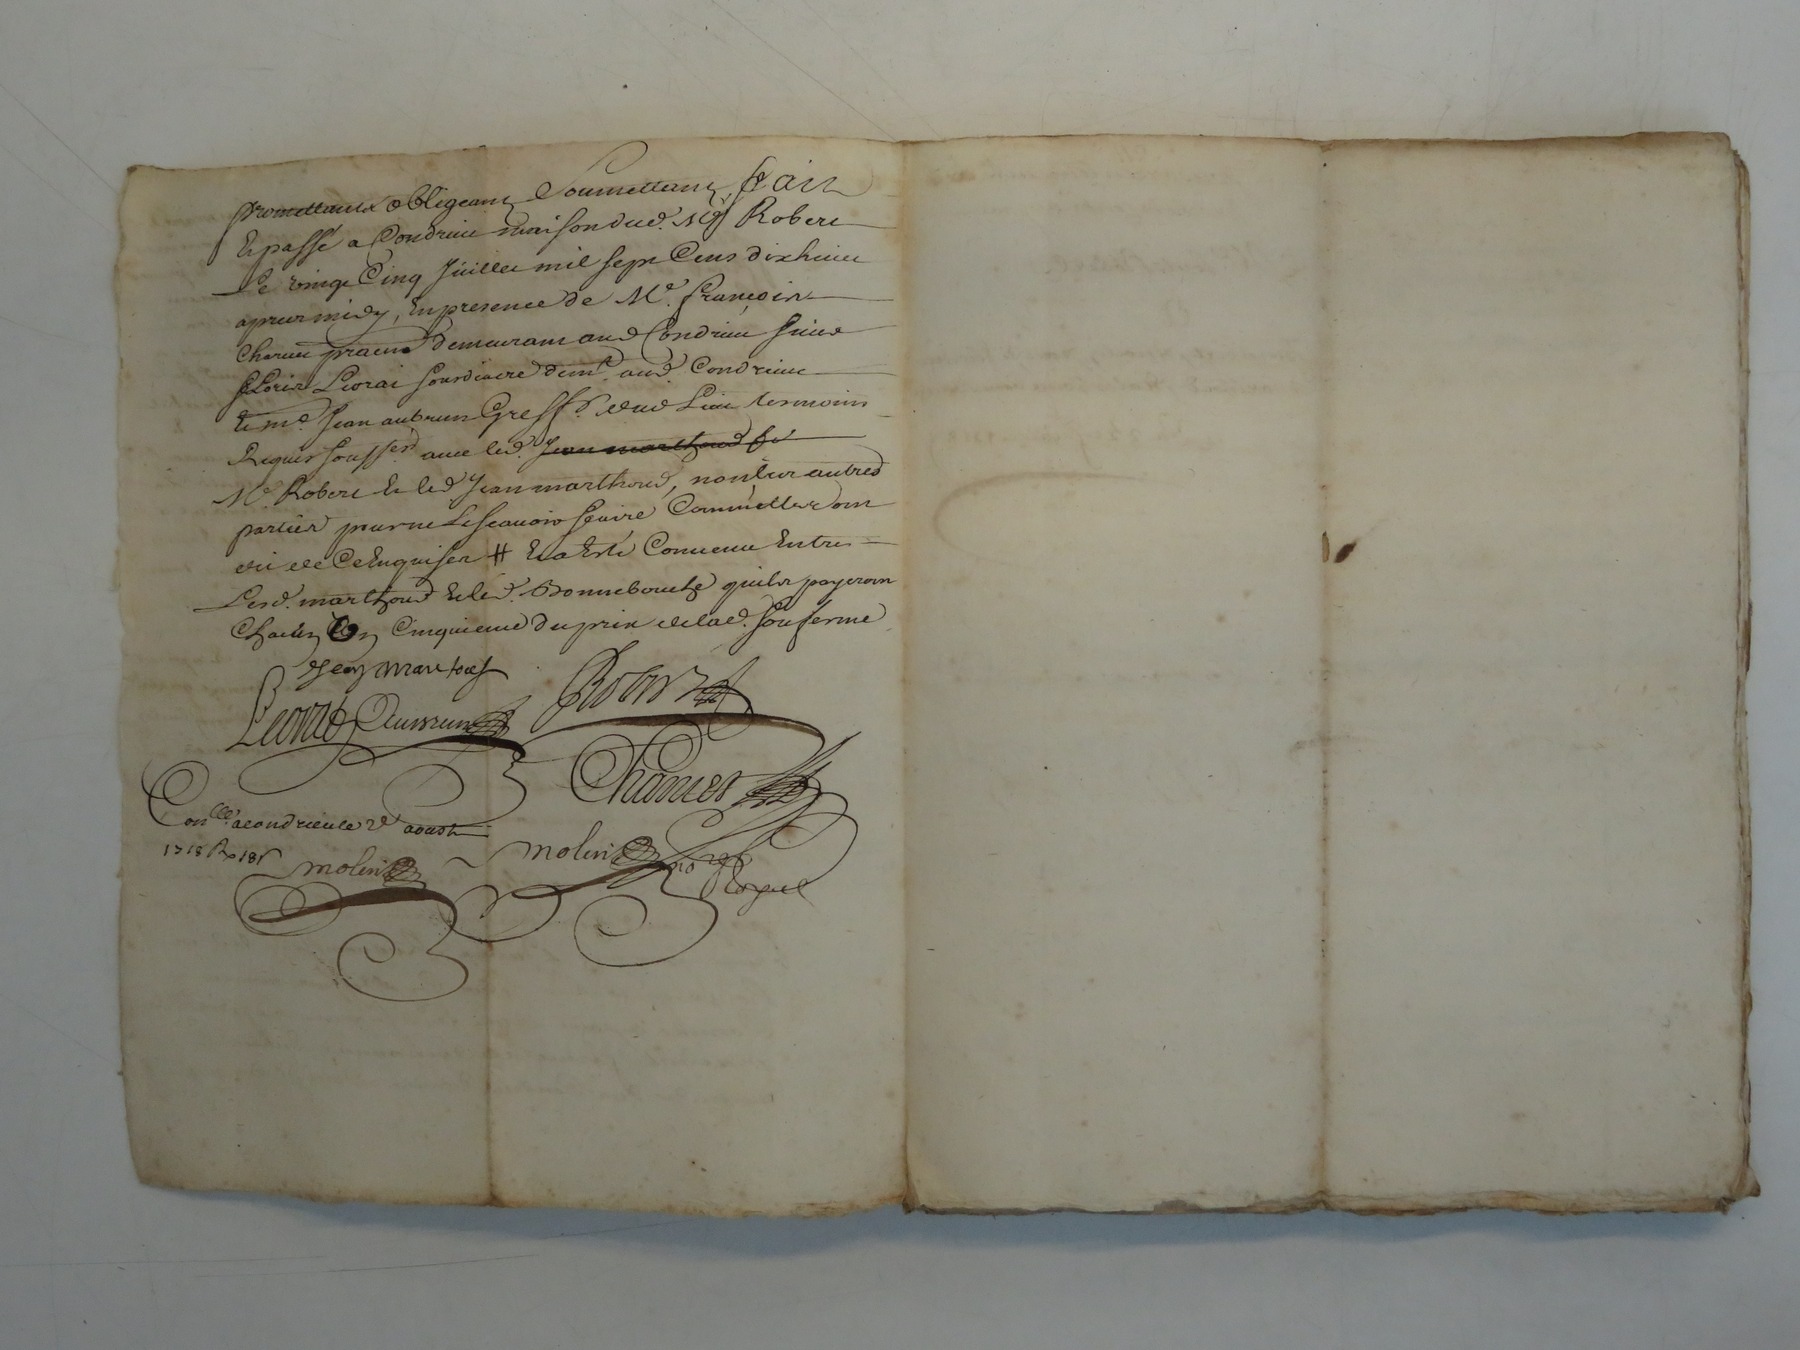 promettans obligeans Soumettans, fait
Et passé a Condrieu maison dud. Me Robert
Le vingt Cinq Juillet mil sept Cens dix huict
apres midy, En presence de Me. françois
demeurant aud Condrieu Sieur
floris Liorai Sousdiacre demt. aud. Condrieu
Et me. Jean aubrun Greff. dud Lieu tesmoins
Requis soussr. avec led. Jean marthoud
Me. Robert Et led Jean marthoud, non les autres
parties pour ne Le Scavoir faire Comme elles ont
dit de Ce Enquises # Et a Esté Convenu Entre
Lesd. marthoud Et led. Bonnebouche quils payeront
Chacun Un Cinquieme du prix de lad. Sous ferme
Jean martoud
Robert
Aubrun
Conlle. a condrieu le 2e aoust
1718 R 18s
molin
molin
Royal